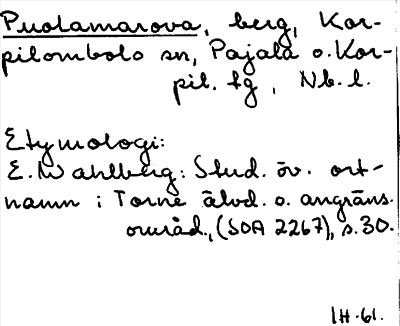 Puolamarova, berg, Kor-
pilombolo sn, Pajala o. Kor-
pil. tg, Nb. l.
Etymologi:
E. Wahlberg: Stud. öv. ort-
namn i Torne älvd. o. angräns.
områd., (SOA 2267), s. 30.
IH. 61.